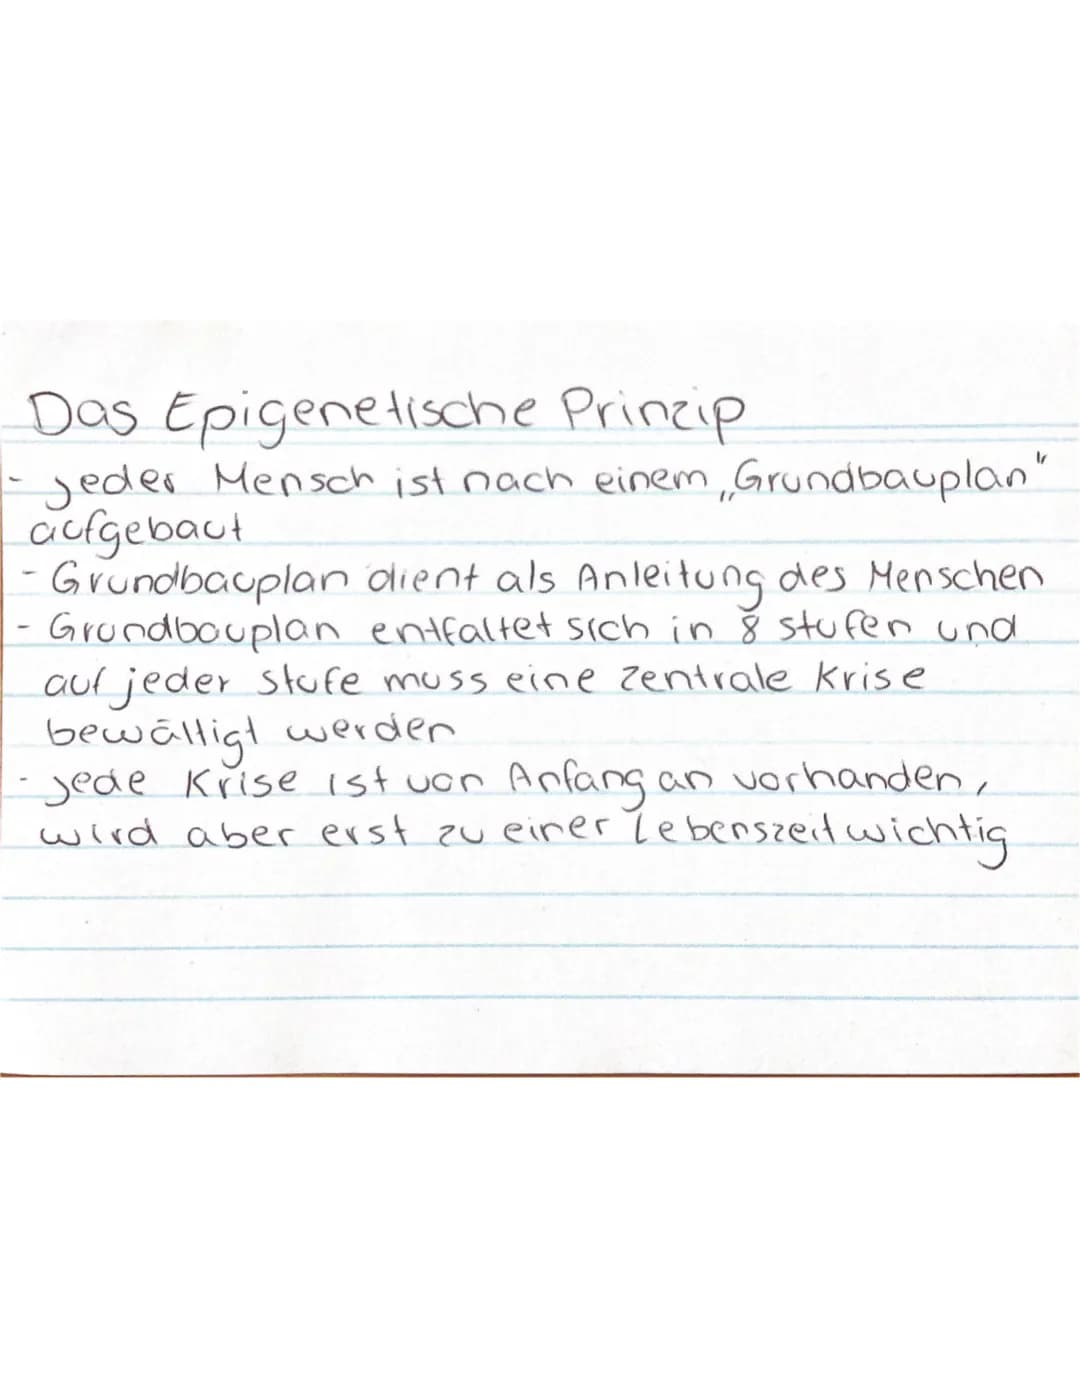 Das Epigenetische Prinzip
- jeder Mensch ist nach einem „Grundbauplan"
aufgebaut
- Grundbauplan dient als Anleitung des Menschen
- Grundbauplan entfaltet sich in 8 stufen und
auf jeder stufe muss eine zentrale Krise
bewältigt werden
- jede Krise ist von Anfang an vorhanden,
wird aber erst zu einer Lebenszeit wichtig